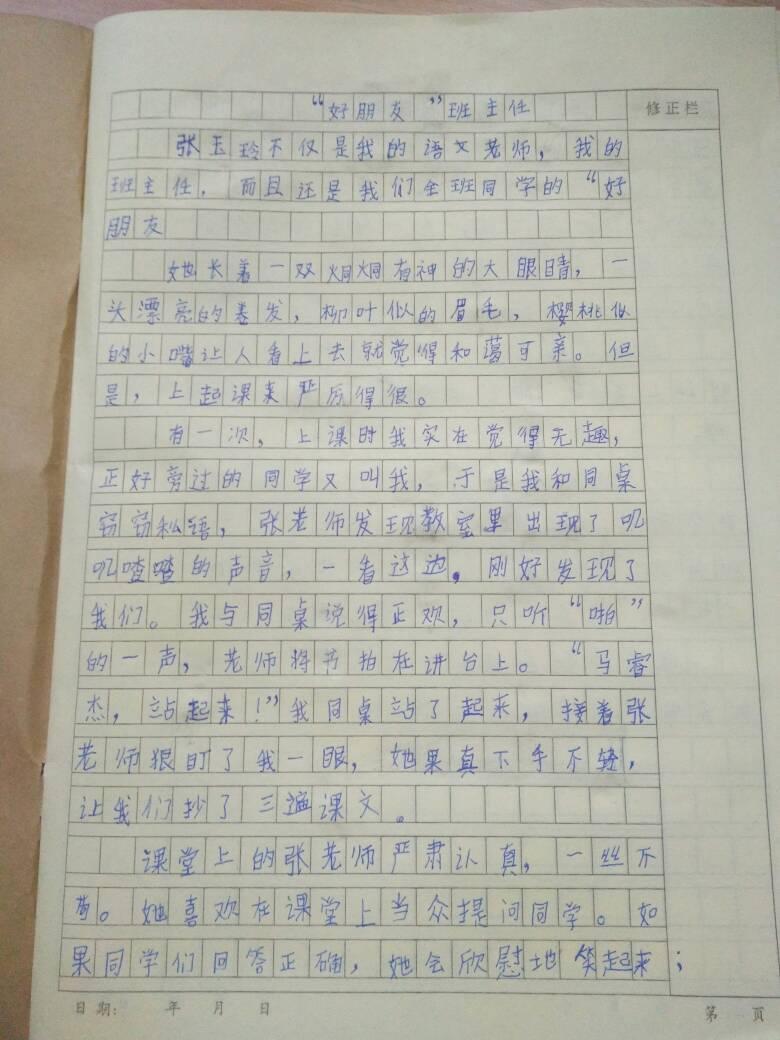 “好朋友”班主任
修正栏
张玉玲不仅是我的语文老师，我的
班主任，而且还是我们全班同学的“好
朋友
她长着一双炯炯有神的大眼睛，一
头漂亮的卷发，柳叶似的眉毛，樱桃似
的小嘴让人看上去就觉得和蔼可亲。但
是，上起课来严厉得很。
有一次，上课时我实在觉得无趣，
正好旁过的同学又叫我，于是我和同桌
窃窃私语，张老师发现教室里出现了叽
叽喳喳的声音，一看这边，刚好发现了
我们。我与同桌说得正欢，只听“啪”
的一声，老师将书拍在讲台上。“马睿
杰，站起来！”我同桌站了起来，接着张
老师狠盯了我一眼，她果真下手不轻，
让我们抄了三遍课文。
课堂上的张老师严肃认真，一丝不
苟。她喜欢在课堂上当众提问同学。如
果同学们回答正确，她会欣慰地笑起来；
日期： 年 月 日
第 页